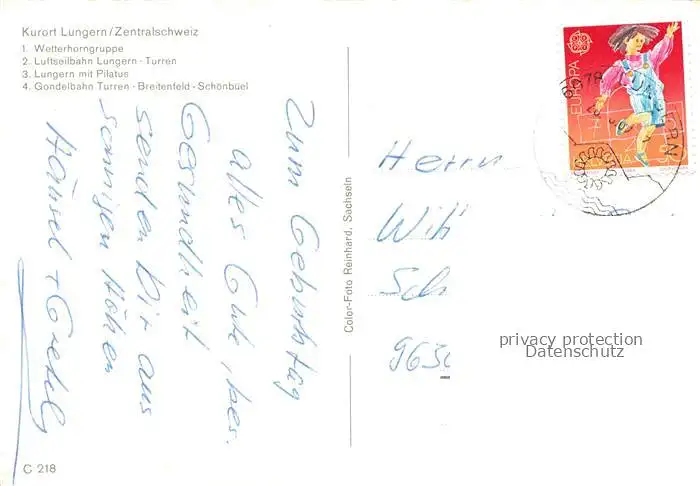 Kurort Lungern/Zentralschweiz
1. Wetterhorngruppe
2. Luftseilbahn Lungern - Turren
3. Lungern mit Pilatus
4. Gondelbahn Turren - Breitenfeld - Schönbüel
Zum Geburtstag
alles Gute, bes.
Gesundheit
senden Dir aus
sonnigen Höhen
Hänsel + Gretel
C 218
Color-Foto Reinhard, Sachseln
EUROPA
6078
Herrn
Wil
Sch
9630
privacy protection
Datenschutz